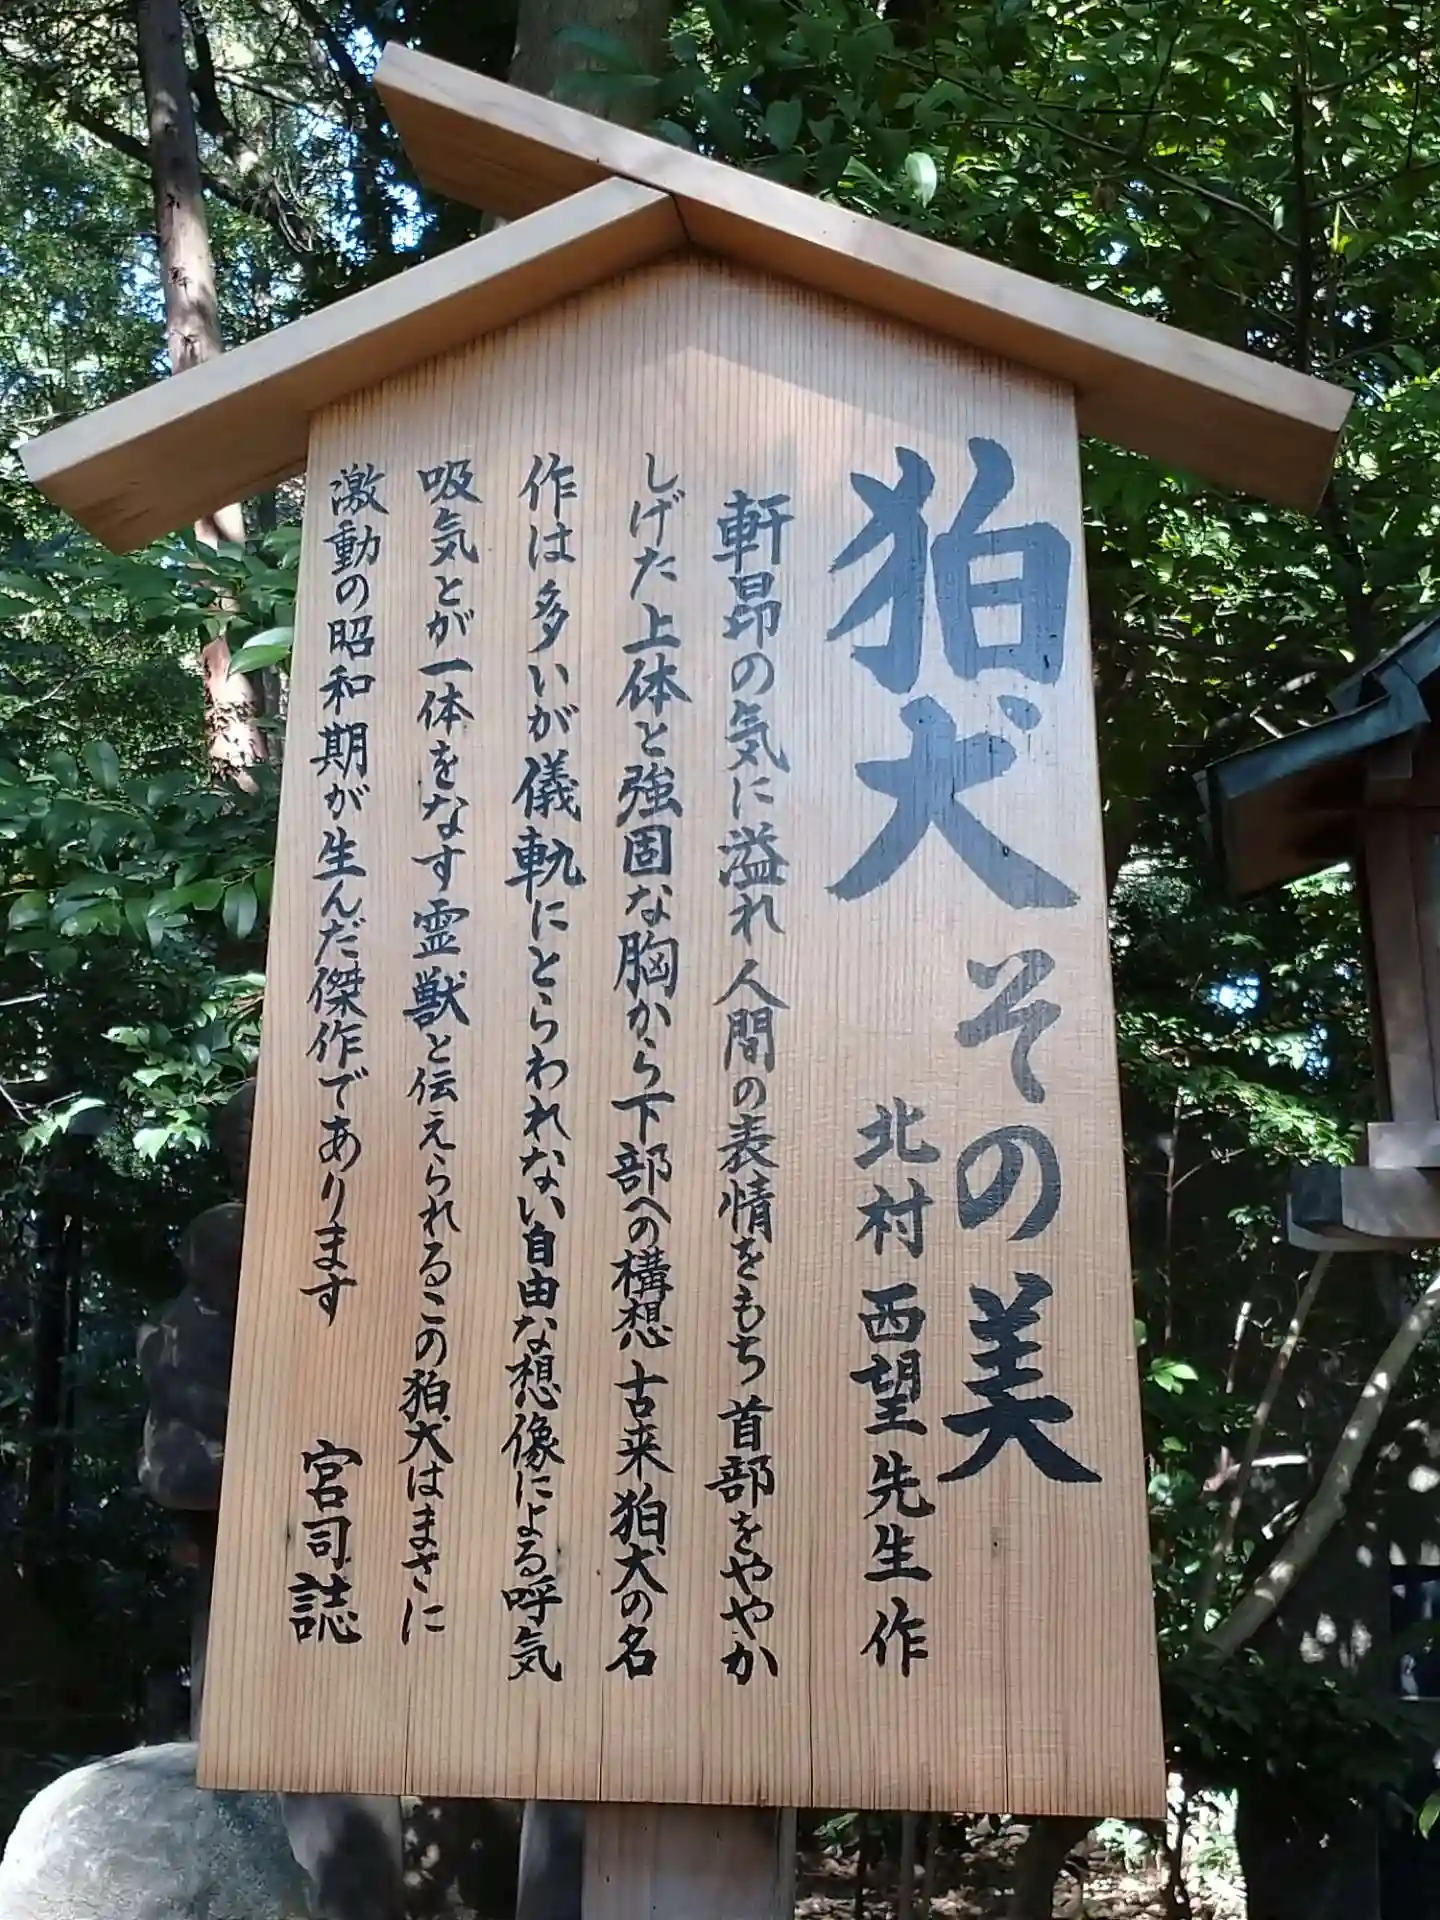 狛犬その美
北村西望先生作
軒昂の気に溢れ人間の表情をもち首部をややか
しげた上体と強固な胸から下部への構想 古来狛犬の名
作は多いが儀軌にとらわれない自由な想像による呼気
吸気とが一体をなす霊獣と伝えられるこの狛犬はまさに
激動の昭和期が生んだ傑作であります
宮司誌